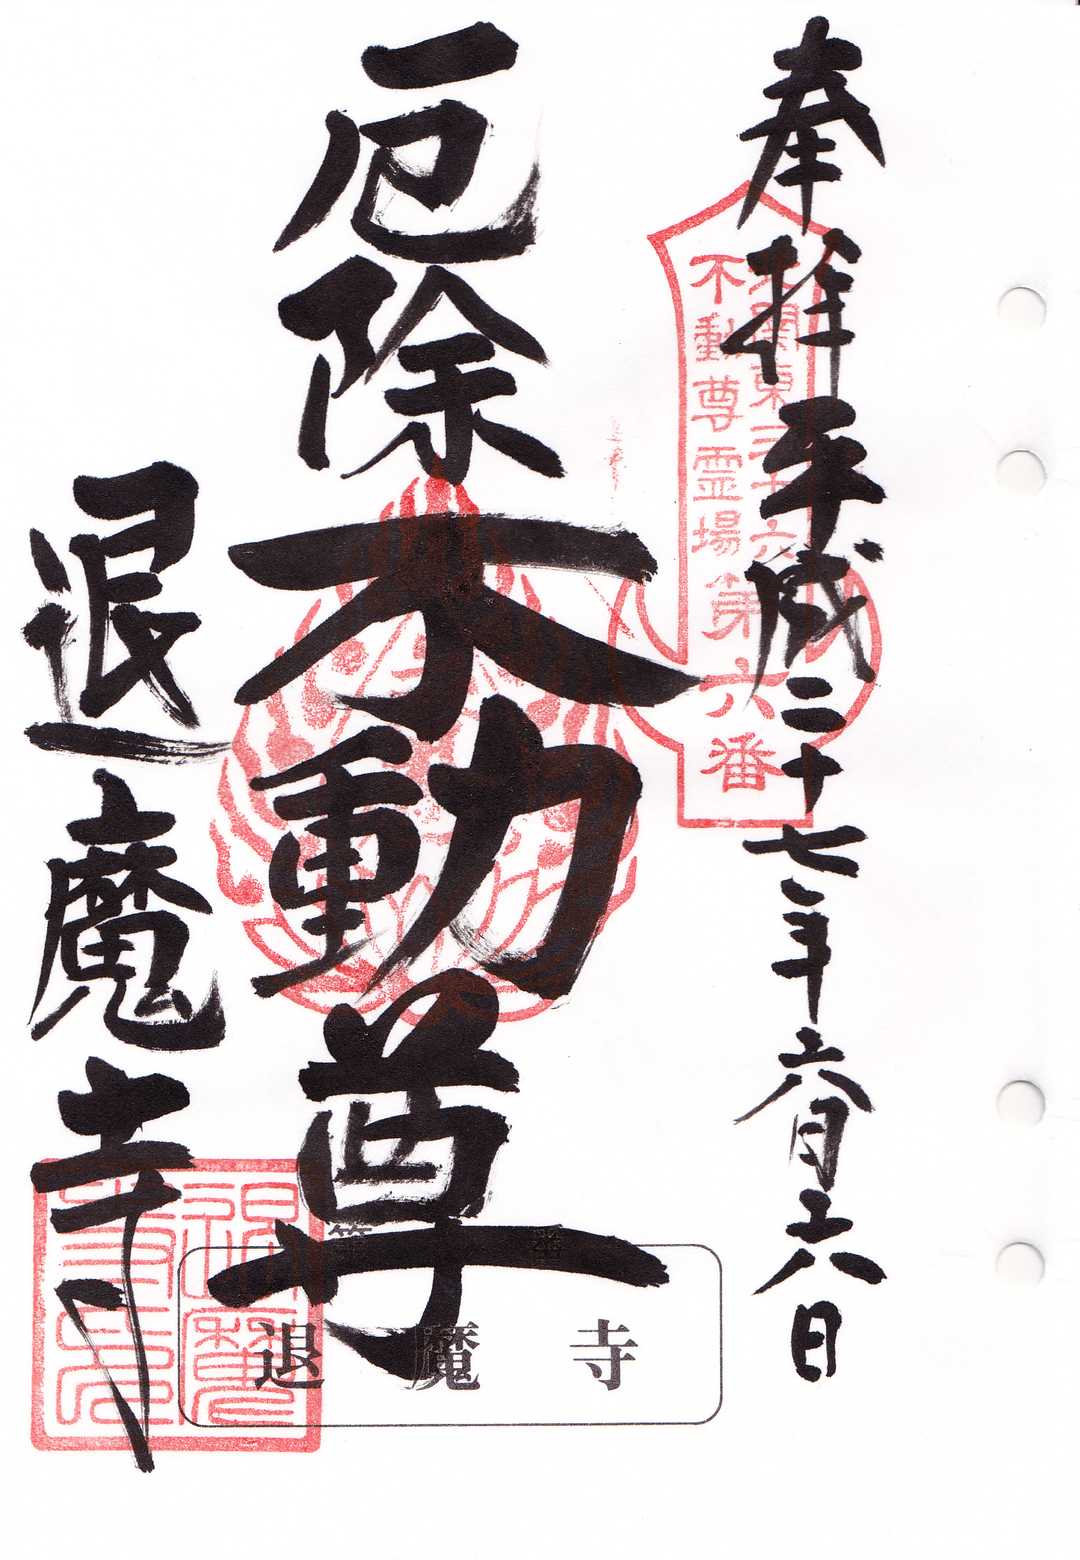 奉拝 平成二十七年六月六日
北関東三十六
不動尊霊場
第六番
厄除不動尊
退魔寺
第 番
退魔寺
退魔寺印